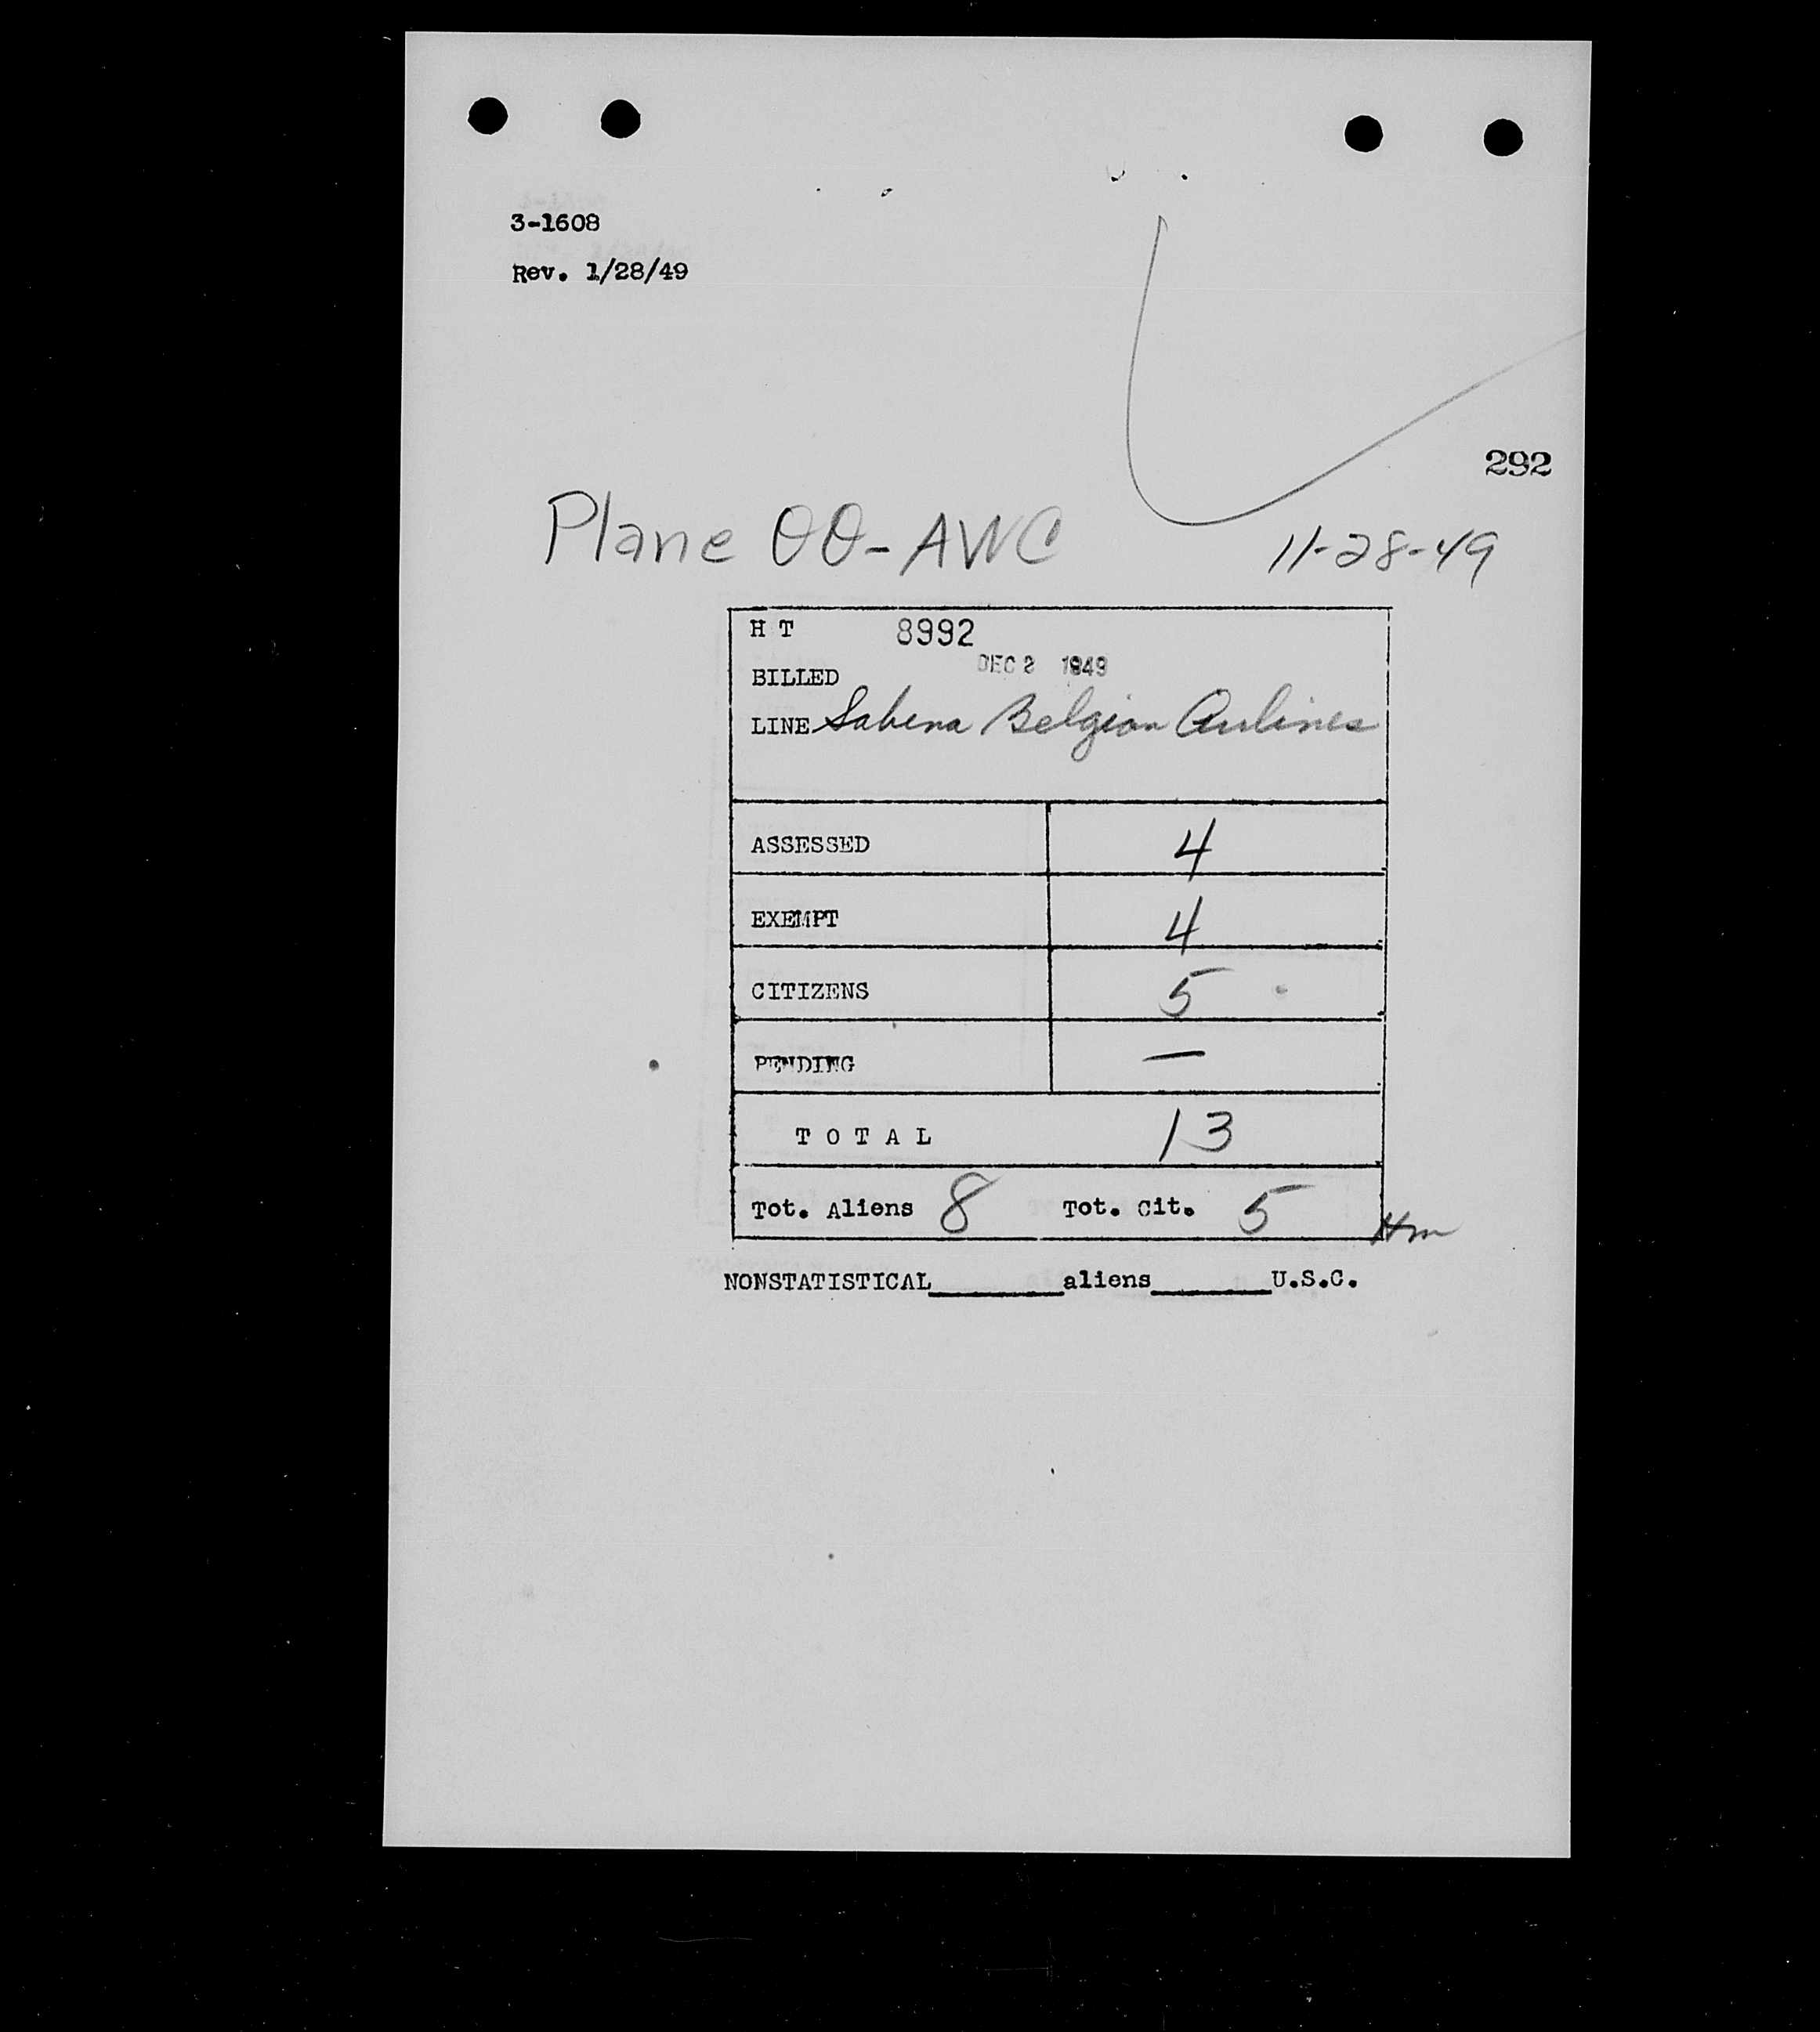 3-1608
Rev. 1/28/49
292
Plane OO-AWC
11-28-49
H T 8992
DEC 2 1949
BILLED
LINE Sabena Belgian Airlines
ASSESSED 4
EXEMPT 4
CITIZENS 5
PENDING —
T O T A L 13
Tot. Aliens 8 Tot. Cit. 5
Hm
NONSTATISTICAL__________aliens_________U.S.C.